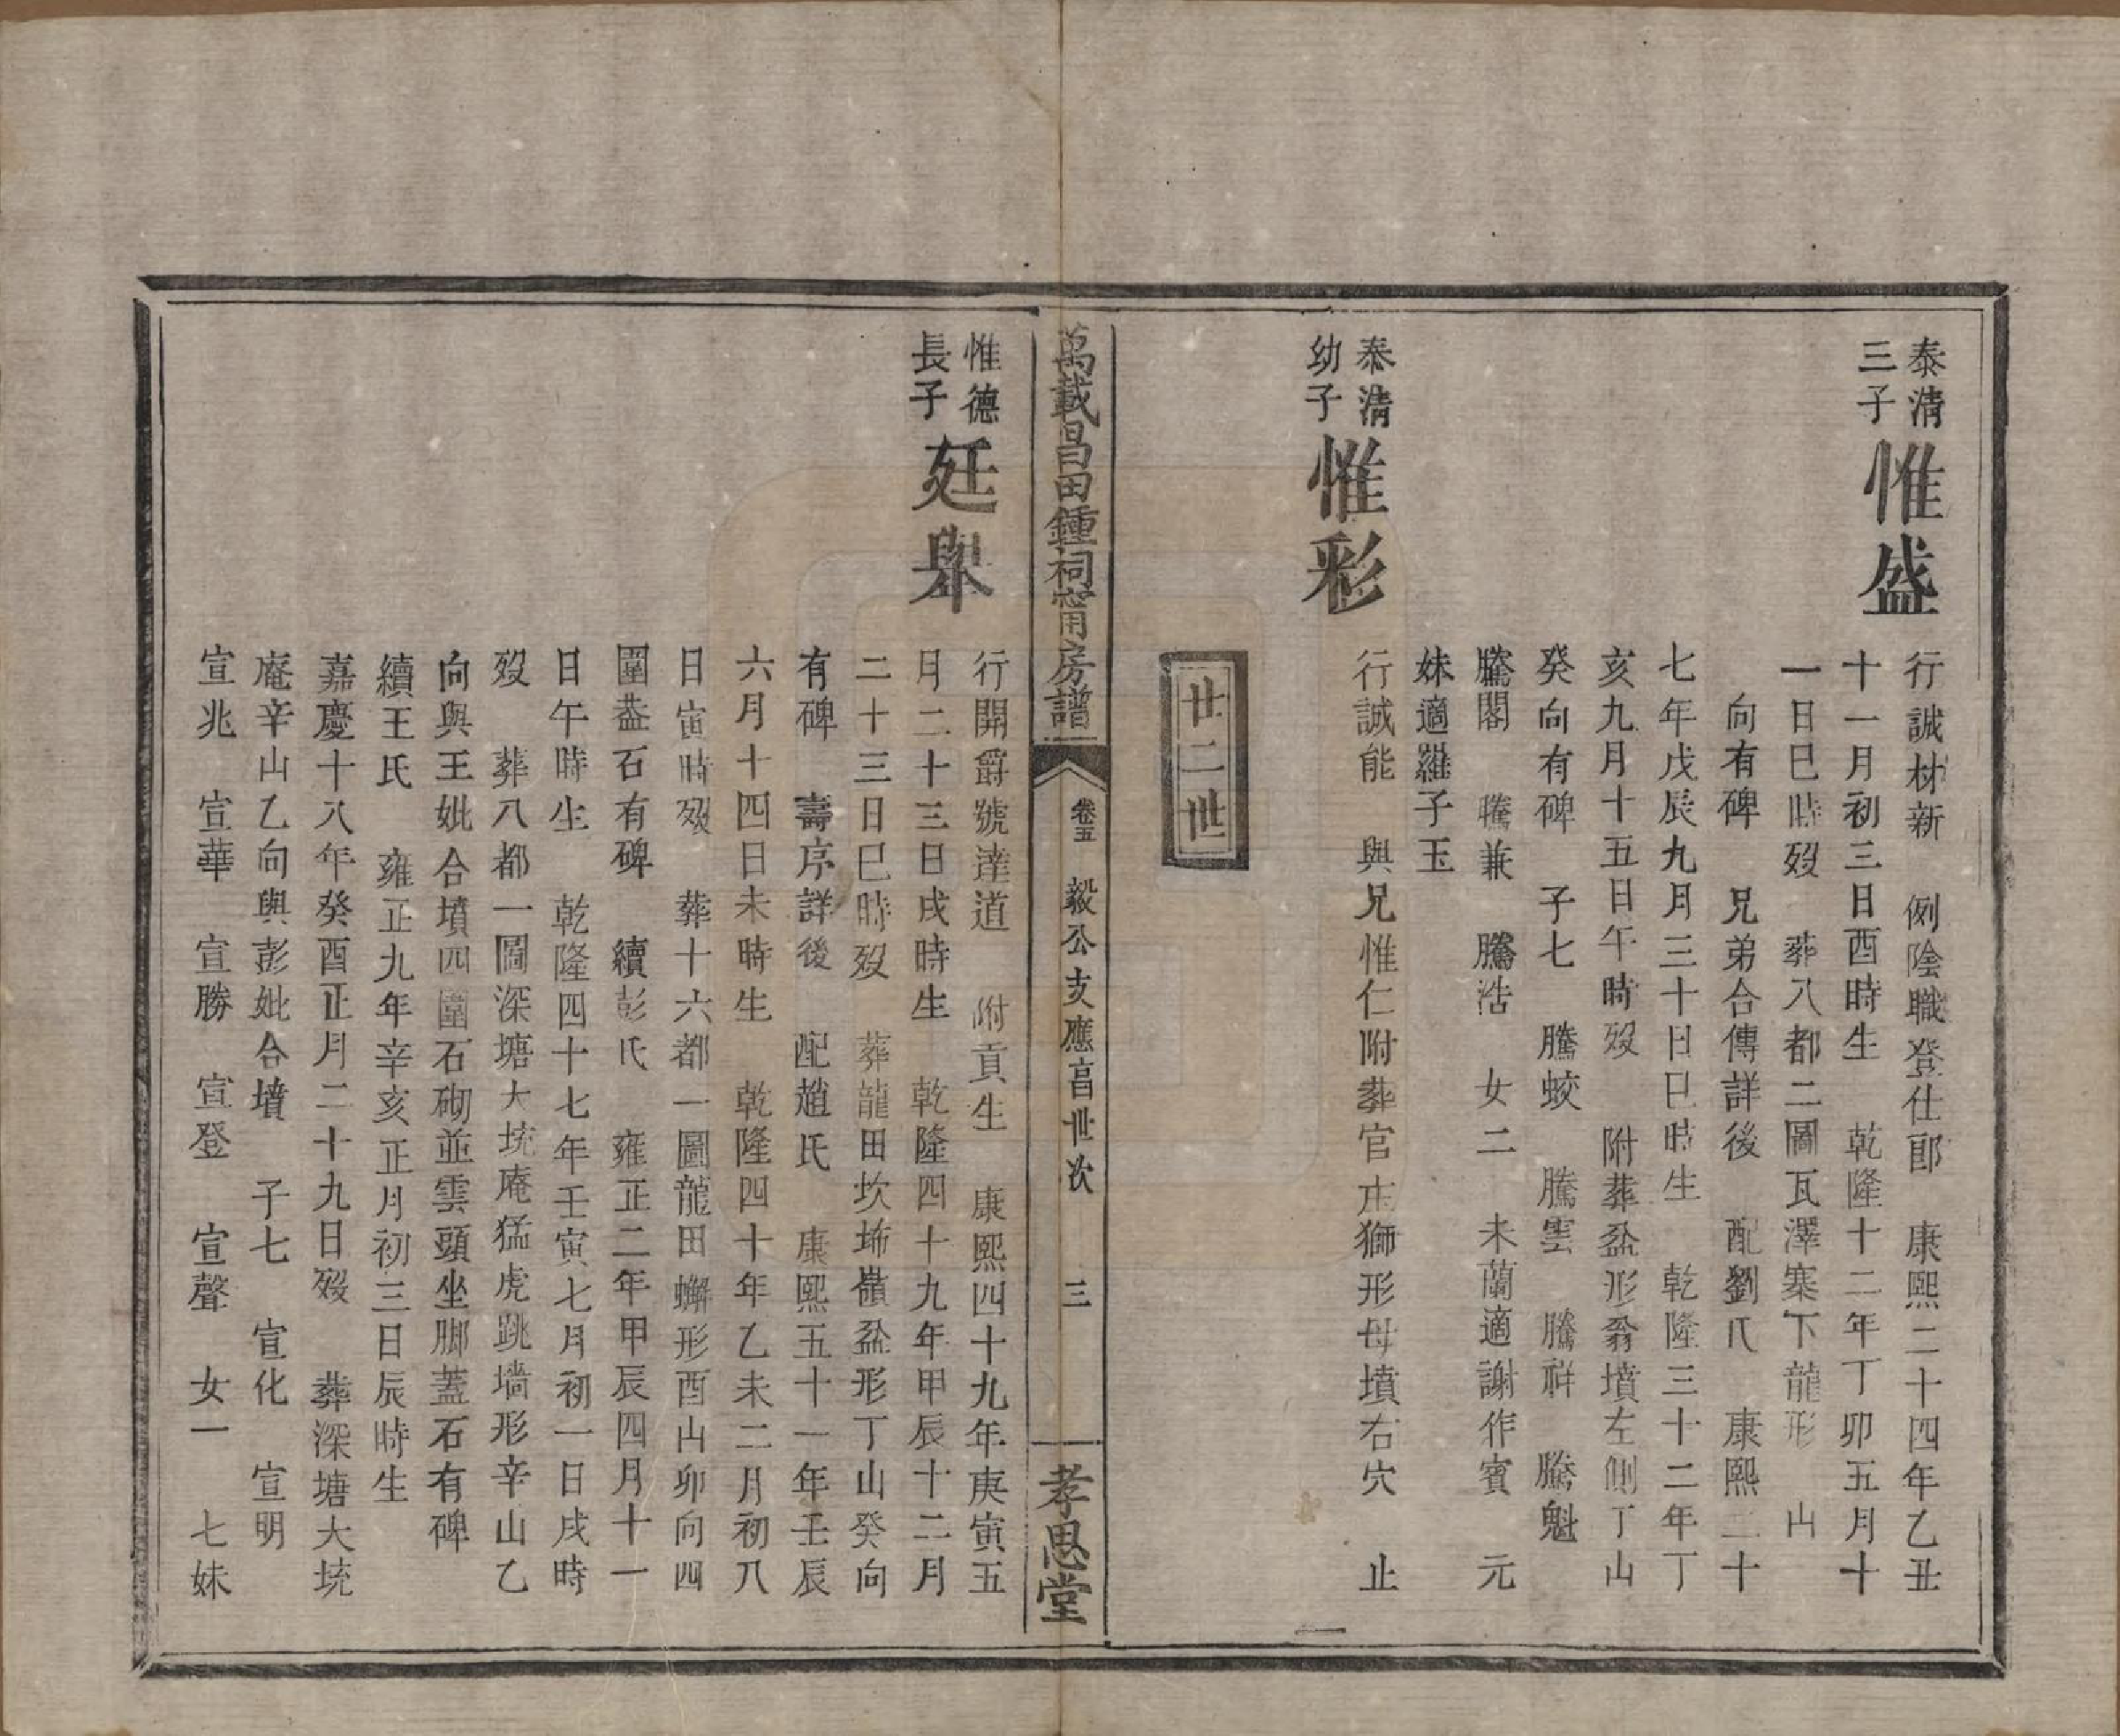 泰清
三子
惟盛
行誠材新 例陰職登仕郎 康熙二十四年乙丑
十一月初三日酉時生 乾隆十二年丁卯五月十
一日巳時歿 葬八都二圖瓦澤寨下龍形 山
向有碑 兄弟合傳詳後 配劉氏 康熙二十
七年戊辰九月三十日巳時生 乾隆三十二年丁
亥九月十五日午時歿 附葬盆形翁墳左側丁山
癸向有碑 子七 騰蛟 騰雲 騰祥 騰魁
騰閣 騰兼 騰浩 女二 未蘭適謝作賓 元
妹適羅子玉
泰清
幼子
惟彩
行誠能 與兄惟仁附葬官庄獅形母墳右穴 止
廿二世
萬載昌田鍾祠甯房譜
卷五
毅公支應昌世次
三
孝思堂
惟德
長子
廷舉
行開爵號達道 附貢生 康熙四十九年庚寅五
月二十三日戌時生 乾隆四十九年甲辰十二月
二十三日巳時歿 葬龍田坎㘵嶺盆形丁山癸向
有碑 壽序詳後 配趙氏 康熙五十一年壬辰
六月十四日未時生 乾隆四十年乙未二月初八
日寅時歿 葬十六都一圖龍田蠏形酉山卯向四
圍葢石有碑 續彭氏 雍正二年甲辰四月十一
日午時生 乾隆四十七年壬寅七月初一日戌時
歿 葬八都一圖深塘大垸庵猛虎跳墻形辛山乙
向與王妣合墳四圍石砌並雲頭坐脚蓋石有碑
續王氏 雍正九年辛亥正月初三日辰時生
嘉慶十八年癸酉正月二十九日歿 葬深塘大垸
庵辛山乙向與彭妣合墳 子七 宣化 宣明
宣兆 宣華 宣勝 宣登 宣聲 女一 七妹